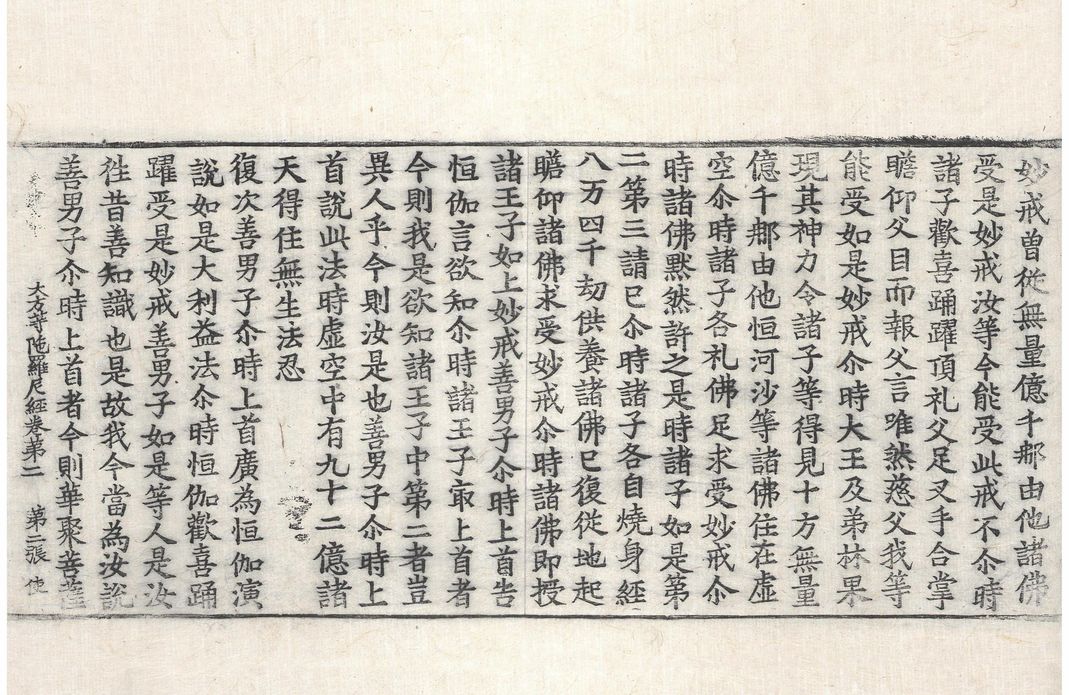 妙戒曽從無量億千那由他諸佛
受是妙戒汝等今能受此戒不尒時
諸子歡喜踊躍頂礼父足叉手合掌
瞻仰父目而報父言唯然慈父我等
能受如是妙戒尒時大王及弟林果
現其神力令諸子等得見十方無量
億千那由他恒河沙等諸佛住在虛
空尒時諸子各礼佛足求受妙戒尒
時諸佛黙然許之是時諸子如是第
二第三請已尒時諸子各自燒身經
八万四千劫供養諸佛已復從地起
瞻仰諸佛求受妙戒尒時諸佛即授
諸王子如上妙戒善男子尒時上首告
恒伽言欲知尒時諸王子㝡上首者
今則我是欲知諸王子中第二者豈
異人乎今則汝是也善男子尒時上
首說此法時虛空中有九十二億諸
天得住無生法忍
復次善男子尒時上首廣為恒伽演
說如是大利益法尒時恒伽歡喜踊
躍受是妙戒善男子如是等人是汝
徃昔善知識也是故我今當為汝說
善男子尒時上首者今則華聚菩薩
大方等陁羅尼經卷第二 第二張 使